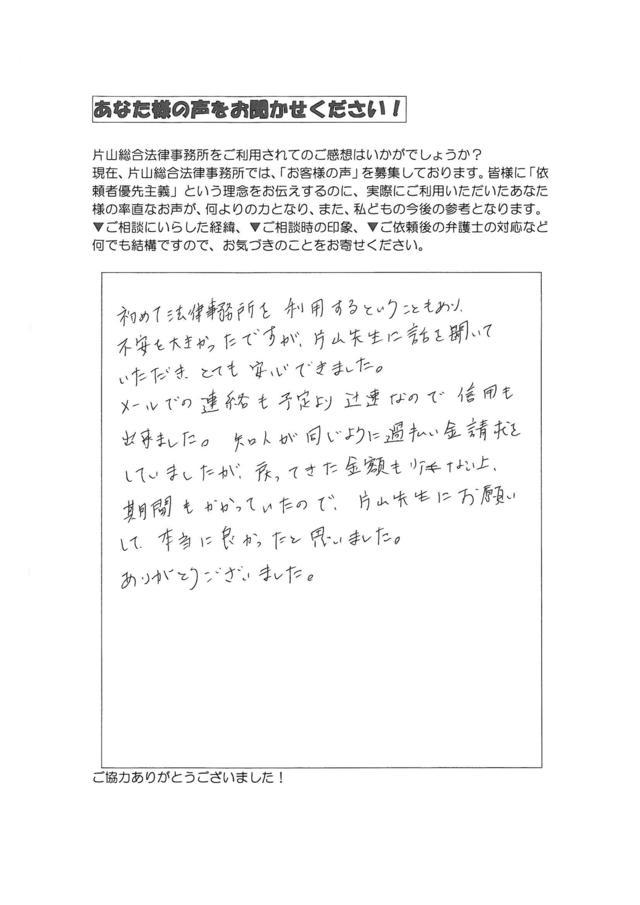 あなた様の声をお聞かせください！
片山総合法律事務所をご利用されてのご感想はいかがでしょうか？
現在、片山総合法律事務所では、「お客様の声」を募集しております。皆様に「依
頼者優先主義」という理念をお伝えするのに、実際にご利用いただいたあなた
様の率直なお声が、何よりの力となり、また、私どもの今後の参考となります。
▼ご相談にいらした経緯、▼ご相談時の印象、▼ご依頼後の弁護士の対応など
何でも結構ですので、お気づきのことをお寄せください。
初めて法律事務所を利用するということもあり、
不安も大きかったですが、片山先生に話を聞いて
いただき、とても安心できました。
メールでの連絡も予定より迅速なので信用も
出来ました。知人が同じように過払い金請求を
していましたが、戻ってきた金額も少ない上、
期間もかかっていたので、片山先生にお願い
して、本当に良かったと思いました。
ありがとうございました。
ご協力ありがとうございました！